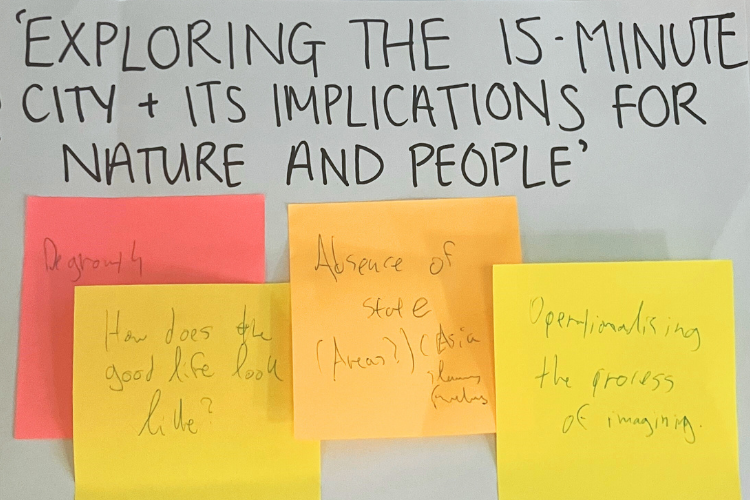 'EXPLORING THE 15-MINUTE
CITY + ITS IMPLICATIONS FOR
NATURE AND PEOPLE'
Degrowth
How does the
good life look
like?
Absence of
state
(Areas?) (Asia
slums
Operationalising
the process
of imagining.